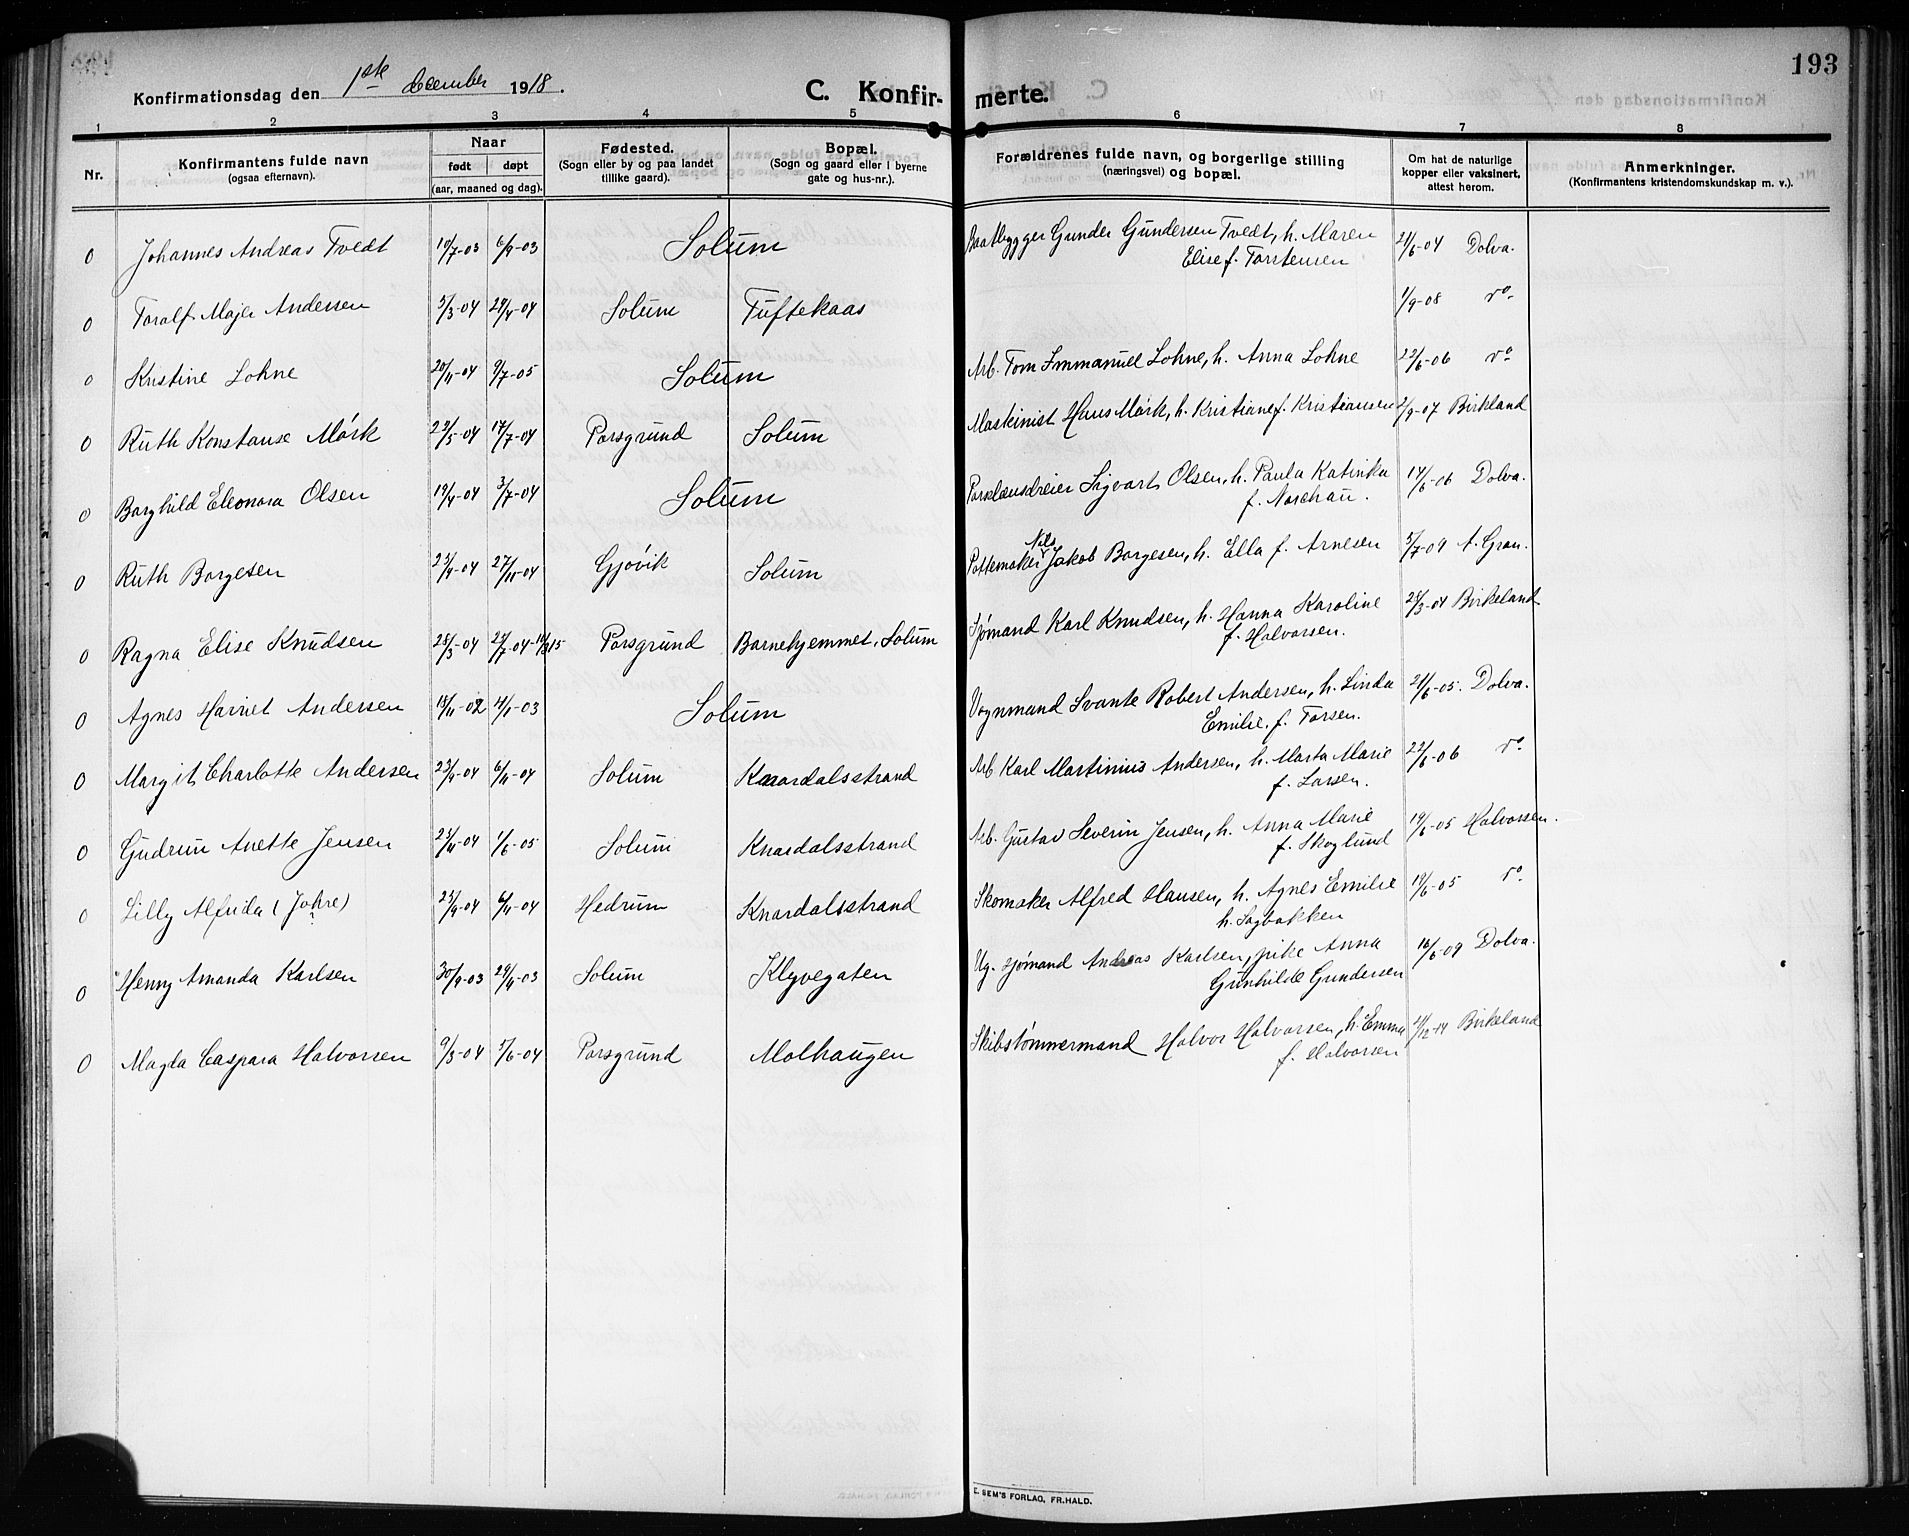 193
Konfirmationsdag den 1ste december 1918.
C. Konfirmerte.
1 2 3 4 5 6 7 8
Nr.
Konfirmantens fulde navn
(ogsaa efternavn).
Naar
født døpt
(aar, maaned og dag).
Fødested.
(Sogn eller by og paa landet
tillike gaard).
Bopæl.
(Sogn og gaard eller i byerne
gate og hus-nr.).
Forældrenes fulde navn, og borgerlige stilling
(næringsvei) og bopæl.
Om hat de naturlige
kopper eller vaksinert,
attest herom.
Anmerkninger.
(Konfirmantens kristendomskundskap m. v.).
0 Johannes Andreas Tvedt 10/7-03 6/9-03 Solum Baatbygger Gunder Gundersen Tvedt, h. Maren 21/6-04 Dolva.
Elise f. Torstensen
0 Toralf Majer Andersen 5/3-04 24/4-04 Solum Tuftekaas 1/9-08 do
0 Kristine Lohne 20/11-04 9/7-05 Solum Arb. Tom Immanuel Lohne, h. Anna Lohne 22/6-06 do
0 Ruth Konstanse Mørk 22/5-04 17/7-04 Porsgrund Solum Maskinist Hans Mørk, h. Kristiane f. Kristiansen 2/9-07 Birkland
0 Borghild Eleonora Olsen 19/4-04 3/7-04 Solum Porslænsdreier Sigvart Olsen, h. Paula Katinka 14/6-06 Dolva.
f. Narchau.
0 Ruth Borgesen 23/9-04 27/11-04 Gjøvik Solum Pottemaker Nils Jakob Borgesen, h. Ella f. Arnesen 5/7-09 A. Gran.
0 Ragna Elise Knudsen 28/3-04 24/7-04 Porsgrund Barnehjemmet, Solum Sjømand Karl Knudsen, h. Hanna Karoline Birkeland
f. Halvorsen.
0 Agnes Harriet Andersen 18/11-02 4/1-03 Solum Vognmand Svante Robert Andersen, h. Linda 21/6-05. Dolva.
Emilie. f. Torsen.
0 Margit Charlotte Andersen 23/9-04 6/11-04 Solum Knardalsstrand Arb Karl Martinius Andersen, h. Marta Marie 22/6-06 do
f. Larsen.
0 Gudrun Anette Jensen 23/11-04 1/6-05 Solum Knardalsstrand Arb. Gustav Severin Jensen, h. Anna Marie 19/6-05 Halvorsen.
f. Skoglund
0 Lilly Alfrida (Johre) 23/9-04 6/11-04 Hedrum Knardalsstrand Skomaker Alfred Hansen, h. Agnes Emilie 19/6-05 do
h. Sagbakken
0 Henny Amanda Karlsen 30/9-03 29/11-03 Solum Klyvegaten Ug. sjømand Andreas Karlsen, pike Anna 16/6-09 Dolva.
Gunhilde Gundersen
0 Magda Caspara Halvorsen 9/3-04 5/6-04 Porsgrund Molhaugen Skibstømmermand Halvor Halvorsen, h. Emma Birkeland
f. Halvorsen
E. SEM'S FORLAG, FR.HALD.